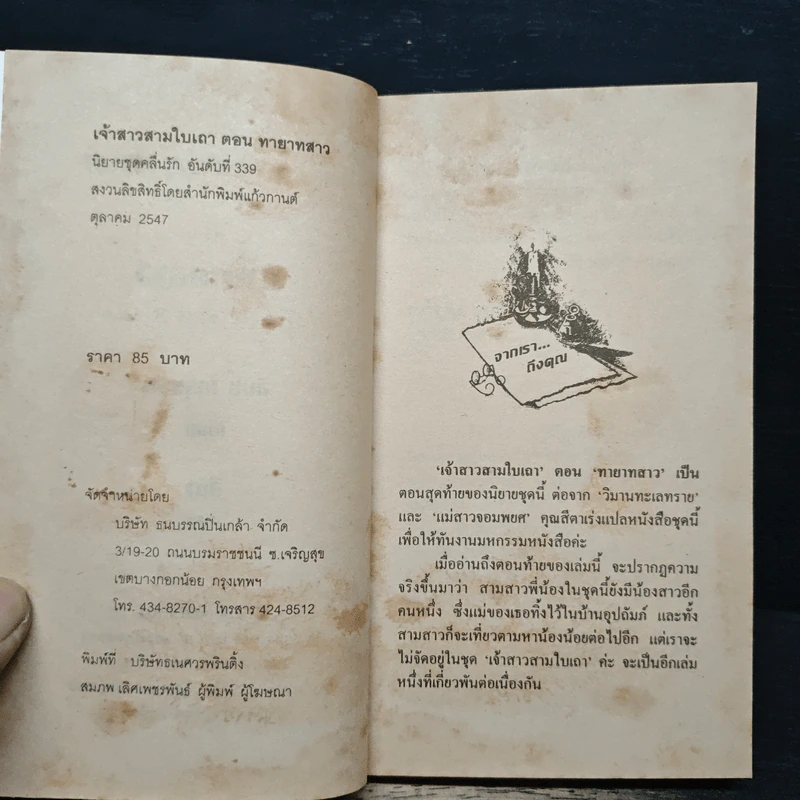 เจ้าสาวสามใบเถา ตอน ทายาทสาว
นิยายชุดคลื่นรัก อันดับที่ 339
สงวนลิขสิทธิ์โดยสำนักพิมพ์แก้วกานต์
ตุลาคม 2547
ราคา 85 บาท
จัดจำหน่ายโดย
บริษัท ธนบรรณปิ่นเกล้า จำกัด
3/19-20 ถนนบรมราชชนนี ซ.เจริญสุข
เขตบางกอกน้อย กรุงเทพฯ
โทร. 434-8270-1 โทรสาร 424-8512
พิมพ์ที่ บริษัทธเนศวรพรินติ้ง
สมภพ เลิศเพชรพันธ์ ผู้พิมพ์ ผู้โฆษณา
จากเรา...
ถึงคุณ
'เจ้าสาวสามใบเถา' ตอน 'ทายาทสาว' เป็น
ตอนสุดท้ายของนิยายชุดนี้ ต่อจาก 'วิมานทะเลทราย'
และ 'แม่สาวจอมพยศ' คุณสีตาเร่งแปลหนังสือชุดนี้
เพื่อให้ทันงานมหกรรมหนังสือค่ะ
เมื่ออ่านถึงตอนท้ายของเล่มนี้ จะปรากฏความ
จริงขึ้นมาว่า สามสาวพี่น้องในชุดนี้ยังมีน้องสาวอีก
คนหนึ่ง ซึ่งแม่ของเธอทิ้งไว้ในบ้านอุปถัมภ์ และทั้ง
สามสาวก็จะเที่ยวตามหาน้องน้อยต่อไปอีก แต่เราจะ
ไม่จัดอยู่ในชุด 'เจ้าสาวสามใบเถา' ค่ะ จะเป็นอีกเล่ม
หนึ่งที่เกี่ยวพันต่อเนื่องกัน